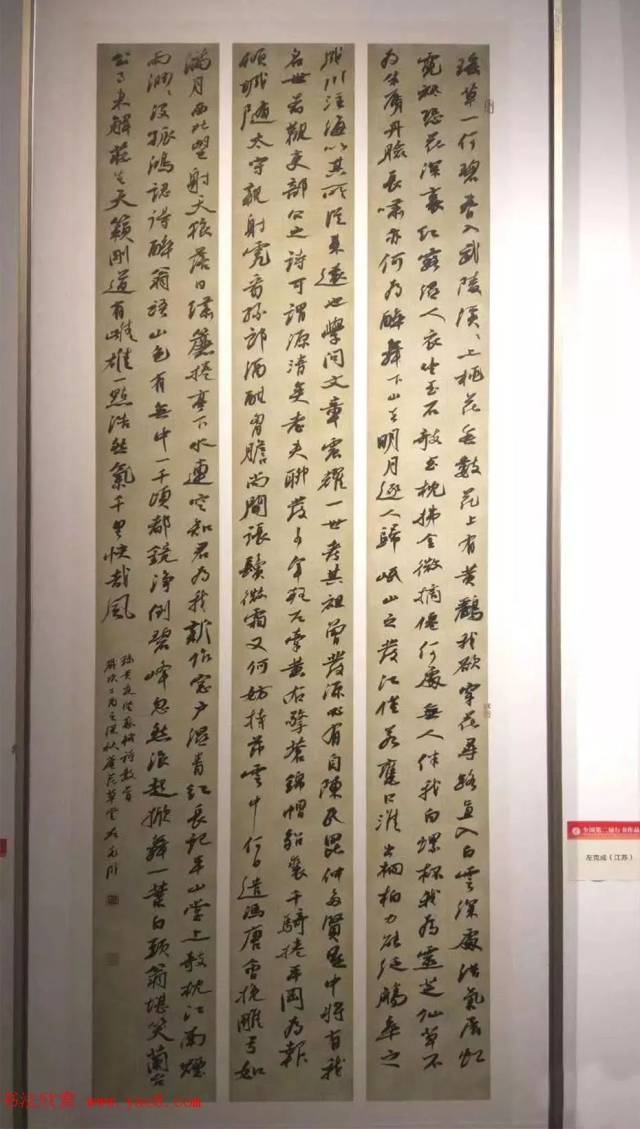 瑶草一何碧春入武陵溪〻上桃花無數花上有黄鸝我欲穿花尋路直入白雲深處浩氣展虹
霓祇恐花深裏紅露濕人衣坐玉石欹玉枕拂金徽謫僊何處無人伴我白螺杯我為靈芝仙草不
為朱唇丹臉長嘯亦何為醉舞下山去明月逐人歸岷山之發江僅若甕口淮出桐柏力能泛觴卒之
成川注海以其所從來遠也學問文章震耀一世考其祖曾發源必有自陳氏昆仲多賢是中將有我
名世者觀吏部公之詩可謂源清矣老夫聊發少年狂左牽黄右擎蒼錦帽貂裘千騎捲平岡為報
傾城隨太守親射虎看孫郎酒酣胸膽尚開張鬢微霜又何妨持節雲中何日遣馮唐會挽雕弓如
滿月西北望射天狼落日繡簾捲亭下水連空知君為我新作窗户濕青紅長記平山堂上欹枕江南煙
雨渺〻没孤鴻認得醉翁語山色有無中一千頃都鏡淨倒碧峰忽然浪起掀舞一葉白頭翁堪笑蘭台
公子未解莊生天籟剛道有雌雄一點浩然氣千里快哉風
全国第二届行书作品
左克成（江苏）
书法欣赏 www.yac8.com